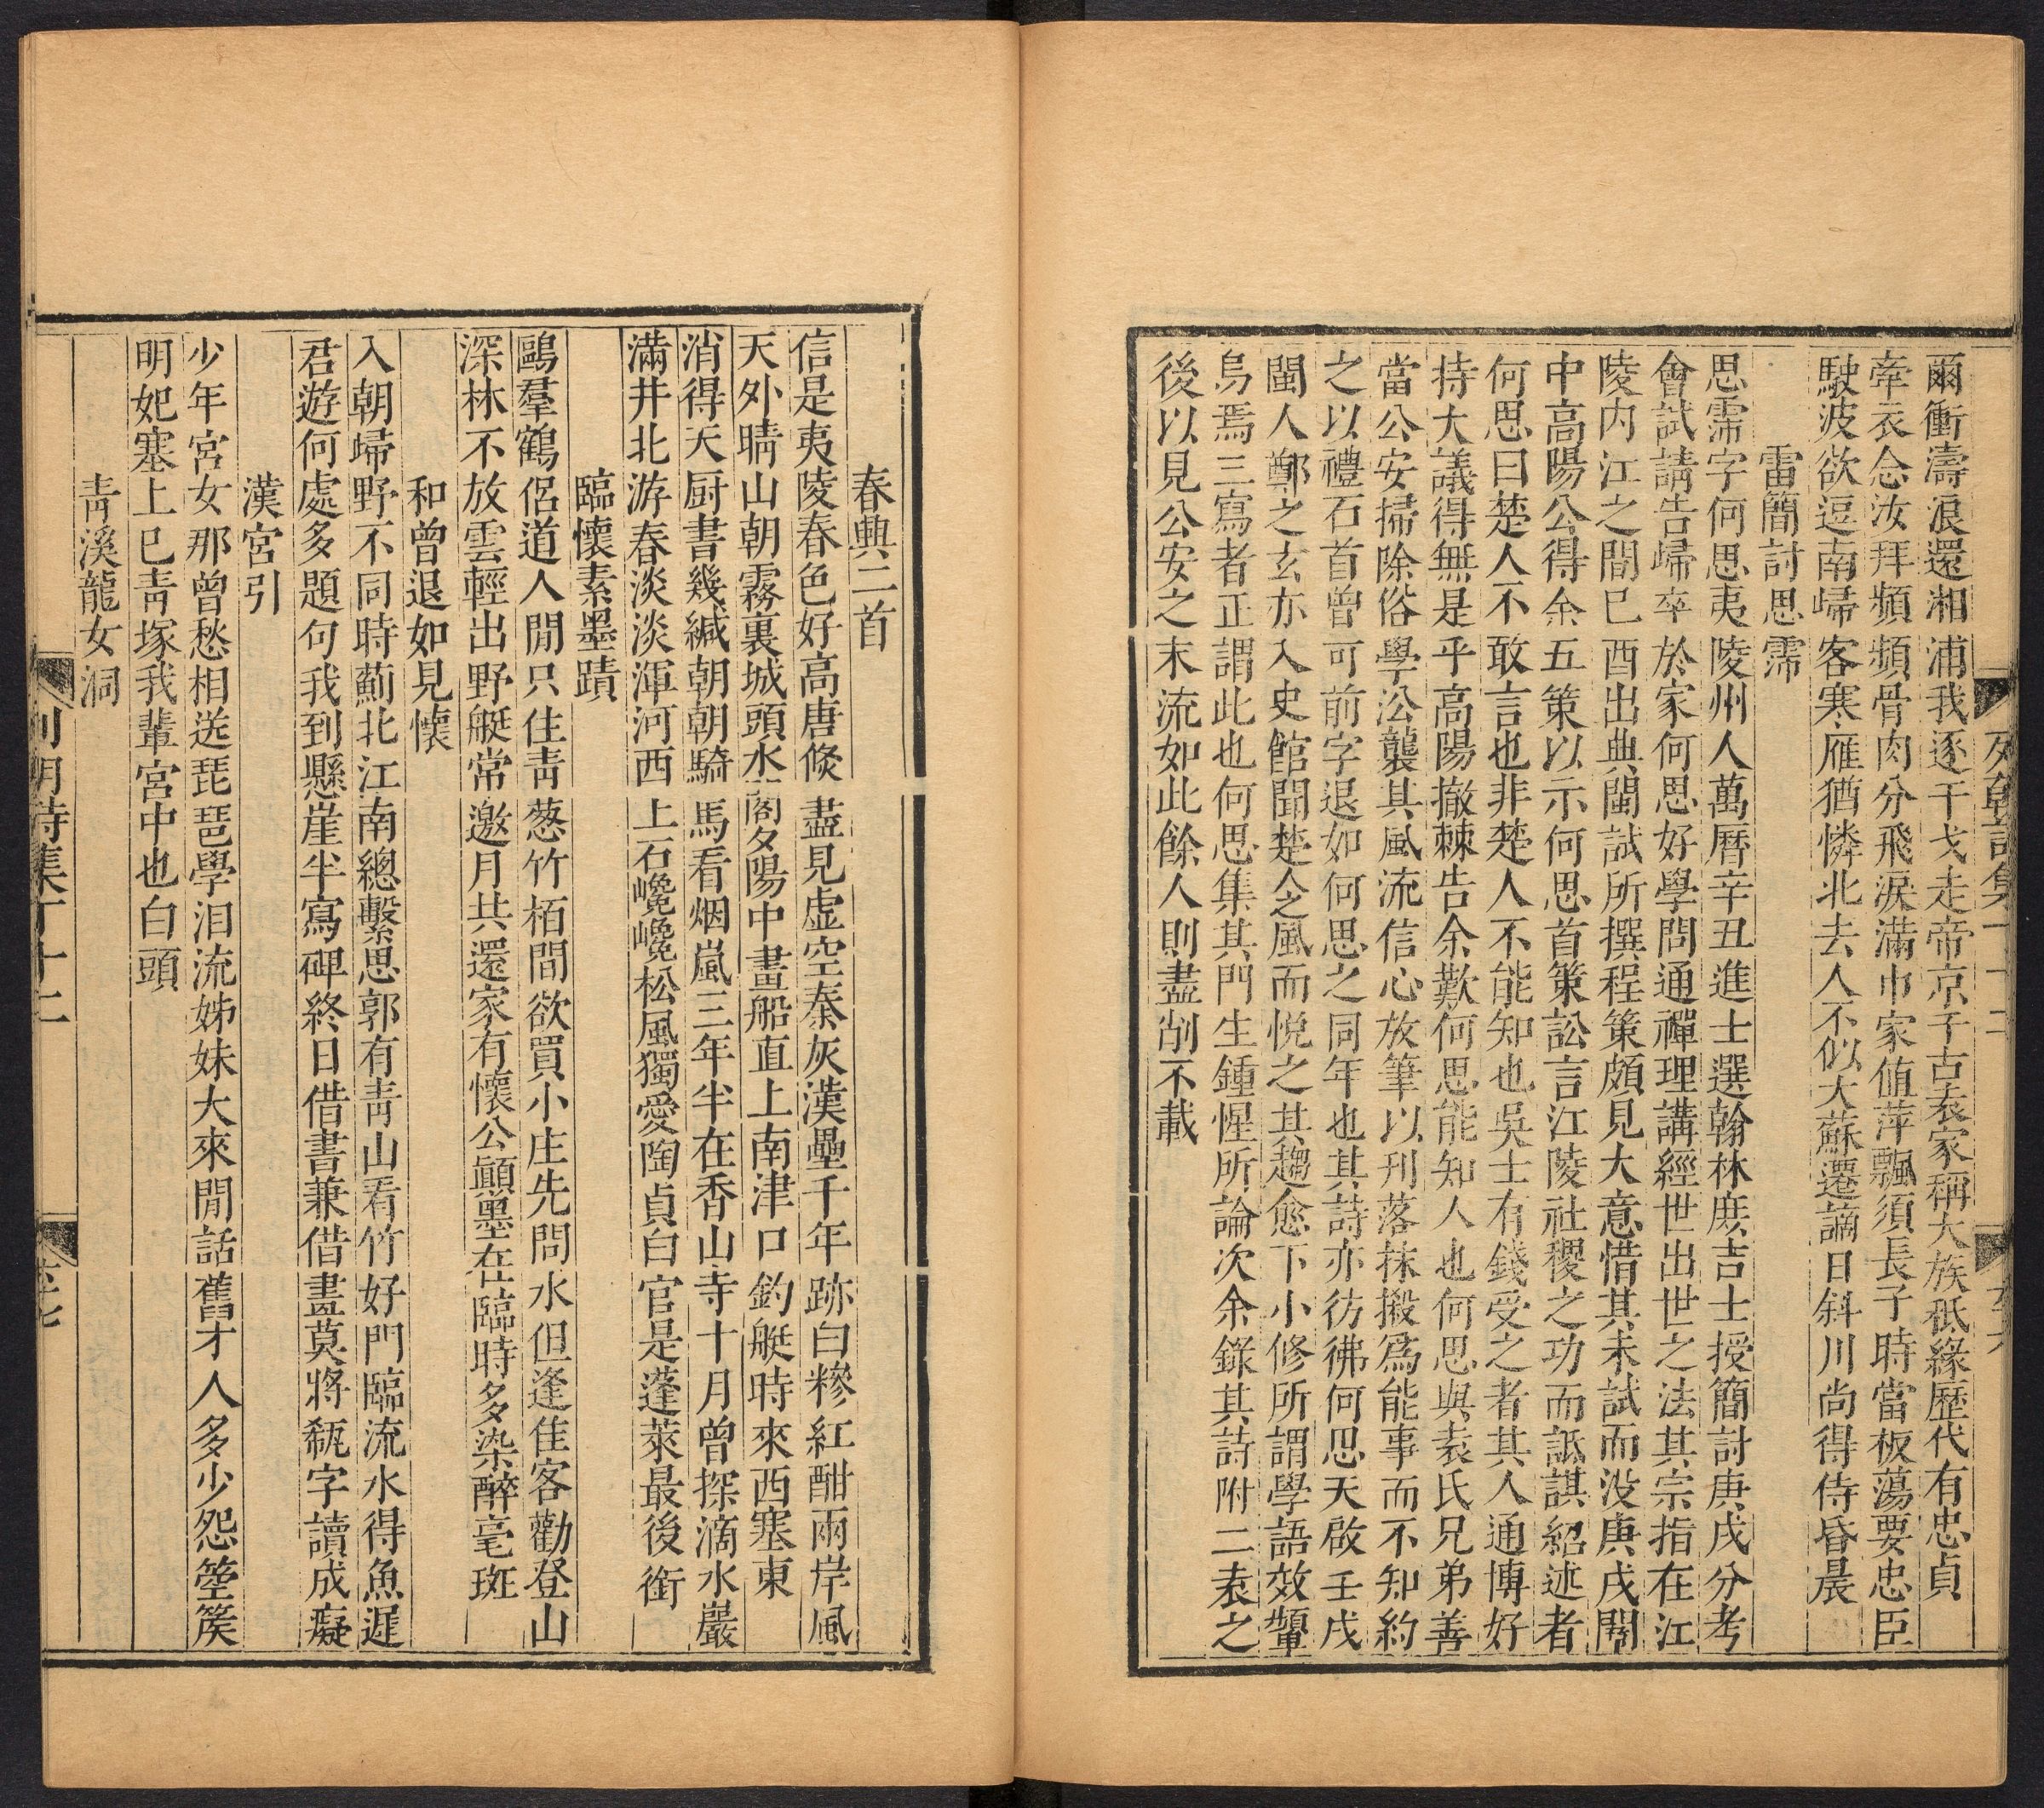 爾衝濤浪還湘浦我逐干戈走帝京子古袁家稱大族秪緣歷代有忠貞
牽衣念汝拜頻頻骨肉分飛淚滿巾家值萍飄須長子時當板蕩要忠臣
駛波欲逗南歸客寒雁猶憐北去人不似大蘇遷謫日斜川尚得侍昏晨
雷簡討思霈
思霈字何思夷陵州人萬曆辛丑進士選翰林庶吉士授簡討庚戌分考
會試請告歸卒於家何思好學問通禪理講經世出世之法其宗指在江
陵内江之間己酉出典閩試所撰程策頗見大意惜其未試而没庚戌闈
中高陽公得余五策以示何思首策訟言江陵社稷之功而詆諆紹述者
何思曰楚人不敢言也非楚人不能知也吳士有錢受之者其人通博好
持大議得無是乎高陽撤棘告余歎何思能知人也何思與袁氏兄弟善
當公安掃除俗學公襲其風流信心放筆以刋落抹摋爲能事而不知約
之以禮石首曾可前字退如何思之同年也其詩亦彷彿何思天啟壬戌
閩人鄭之玄亦入史館聞楚人之風而悅之其趨愈下小修所謂學語效顰
烏焉三寫者正謂此也何思集其門生鍾惺所論次余錄其詩附二袁之
後以見公安之末流如此餘人則盡削不載
春興二首
信是夷陵春色好高唐倏盡見虛空秦灰漢壘千年跡白糝紅酣兩岸風
天外晴山朝霧裏城頭水閣夕陽中畫船直上南津口釣艇時來西塞東
消得天厨書幾緘朝朝騎馬看烟嵐三年半在香山寺十月曾探滴水巖
滿井北游春淡淡渾河西上石巉巉松風獨愛陶貞白官是蓬萊最後銜
臨懷素墨蹟
鷗羣鶴侶道人閒只住青葱竹栢間欲買小庄先問水但逢佳客勸登山
深林不放雲輕出野艇常邀月共還家有懷公顚墨在臨時多染醉毫斑
和曾退如見懷
入朝歸野不同時薊北江南總繫思郭有青山看竹好門臨流水得魚遲
君遊何處多題句我到懸崖半寫碑終日借書兼借畫莫將瓻字讀成癡
漢宮引
少年宮女那曾愁相送琵琶學泪流姊妹大來閒話舊才人多少怨箜篌
明妃塞上巳青塚我輩宮中也白頭
青溪龍女洞
列朝詩集丁十二